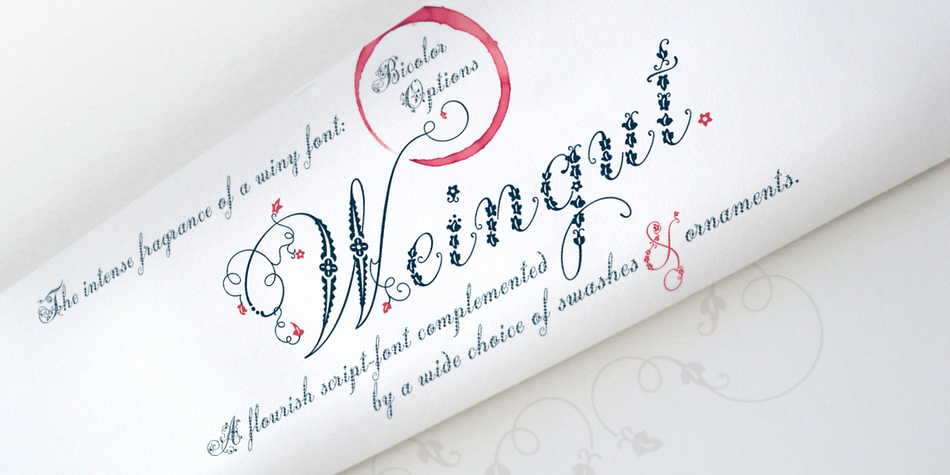 The intense fragrance of a winy font:
Bicolor
Options
Weingut
A flourish script-font complemented
by a wide choice of swashes & ornaments.